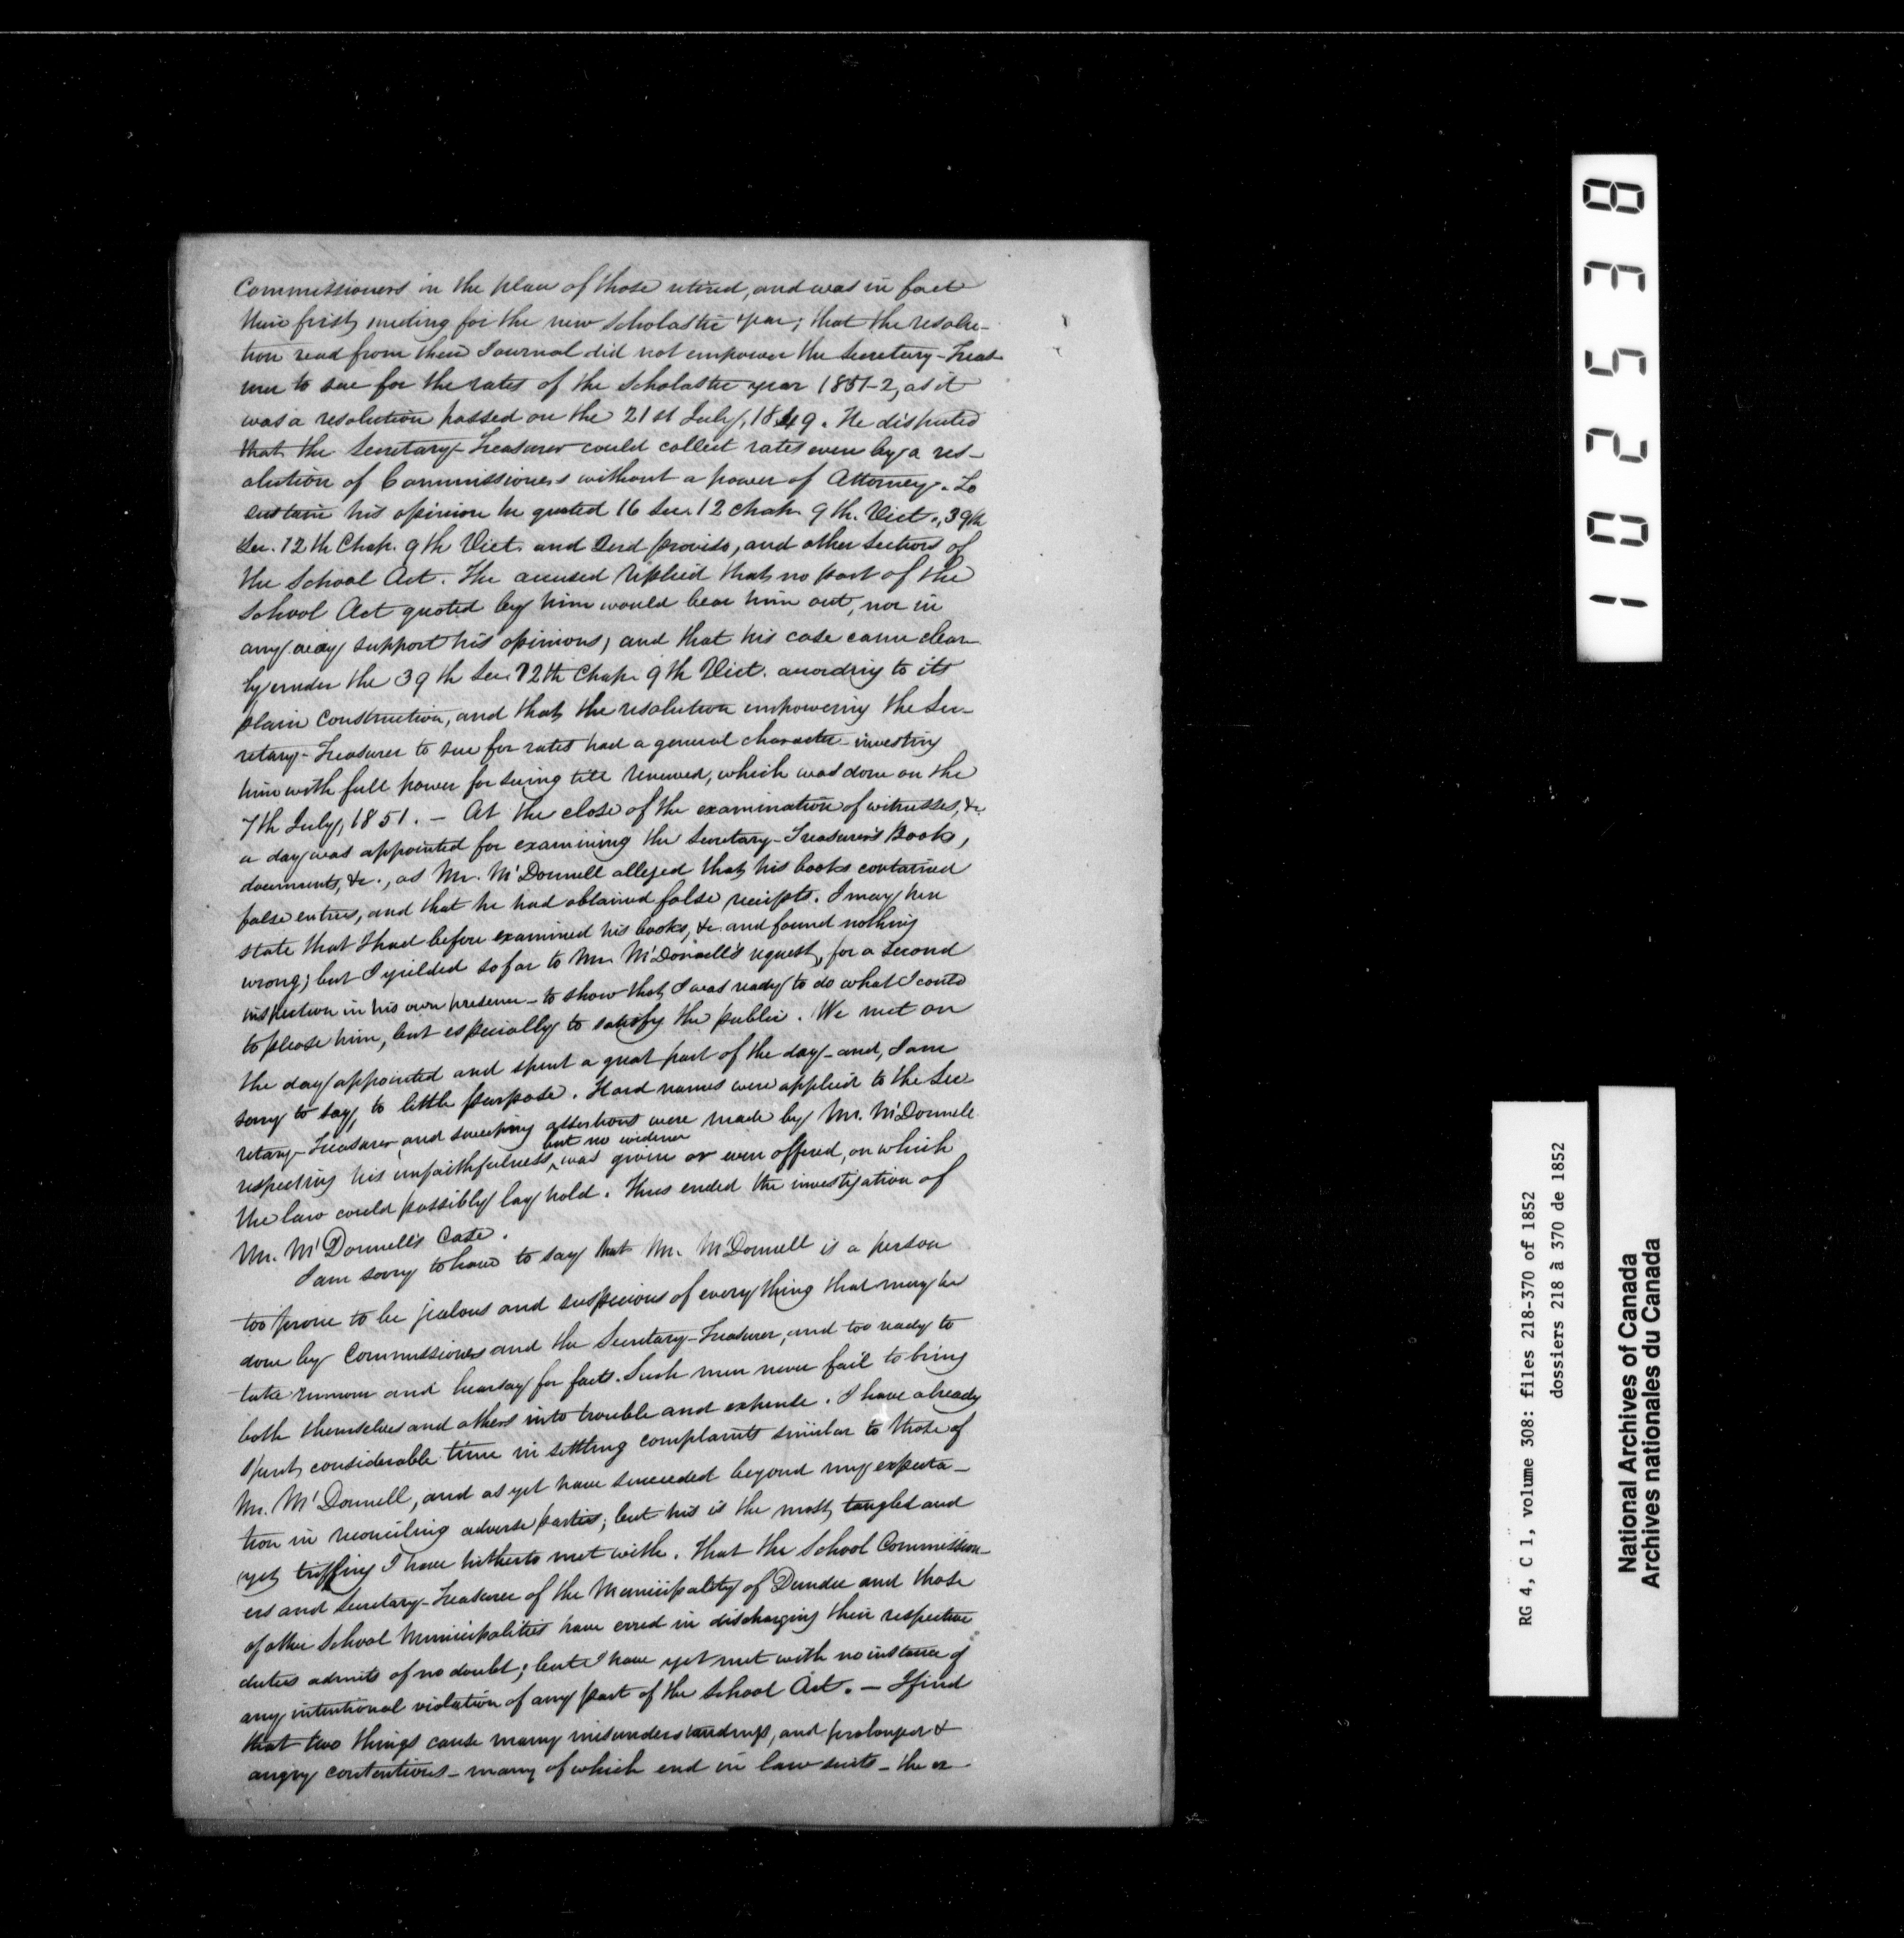 Commissioners in the place of those retired, and was in fact
their first meeting for the new Scholastic year; that the resolu-
tion read from their Journal did not empower the Secretary-Treas-
urer to sue for the rates of the Scholastic year 1851-2, as it
was a resolution passed on the 21st July, 1849. He disputed
that the Secretary-Treasurer could collect rates even by a res-
olution of Commissioners without a power of Attorney. To
sustain his opinion he quoted 16 Sec. 12 Chap. 9th. Vict., 39th
Sec. 12th Chap. 9th Vict. and proviso, and other Sections of
the School Act. The accused replied that no part of the
School Act quoted by him would bear him out, nor in
any way support his opinions; and that his case came clear-
ly under the 39th Sec. 12th Chap. 9th Vict. according to its
plain construction, and that the resolution empowering the Sec-
retary-Treasurer to sue for rates had a general character investing
him with full power for suing till renewed, which was done on the
7th July, 1851. — At the close of the examination of witnesses, &c.
a day was appointed for examining the Secretary-Treasurer's Books,
documents, &c., as Mr. McDonnell alleged that his books contained
false entries, and that he had obtained false receipts. I may here
state that I had before examined his books, &c. and found nothing
wrong; but I yielded so far to Mr. McDonnell's request, for a second
inspection in his own presence - to show that I was ready to do what I could
to please him, but especially to satisfy the public. We met on
the day appointed and spent a great part of the day - and, I am
sorry to say, to little purpose. Hard names were applied to the Sec-
retary-Treasurer and sweeping assertions were made by Mr. McDonnell
respecting his unfaithfulness, but no evidence was given or even offered, on which
the law could possibly lay hold. Thus ended the investigation of
Mr. McDonnell's Case.
I am sorry to have to say that Mr. McDonnell is a person
too prone to be jealous and suspicious of every thing that may be
done by Commissioners and the Secretary-Treasurer, and too ready to
take rumour and hearsay for facts. Such men never fail to bring
both themselves and others into trouble and expense. I have already
spent considerable time in settling complaints similar to those of
Mr. McDonnell, and as yet have succeeded beyond my expecta-
tion in reconciling adverse parties; but his is the most tangled and
yet trifling I have hitherto met with. That the School Commission-
ers and Secretary-Treasurer of the Municipality of Dundee and those
of other School Municipalities have erred in discharging their respective
duties admits of no doubt; but I have yet met with no instance of
any intentional violation of any part of the School Act. — I find
that two things cause many misunderstandings, and prolonged &
angry contentions - many of which end in law suits - the
102538
RG 4, C 1, volume 308: files 218-370 of 1852
dossiers 218 à 370 de 1852
National Archives of Canada
Archives nationales du Canada